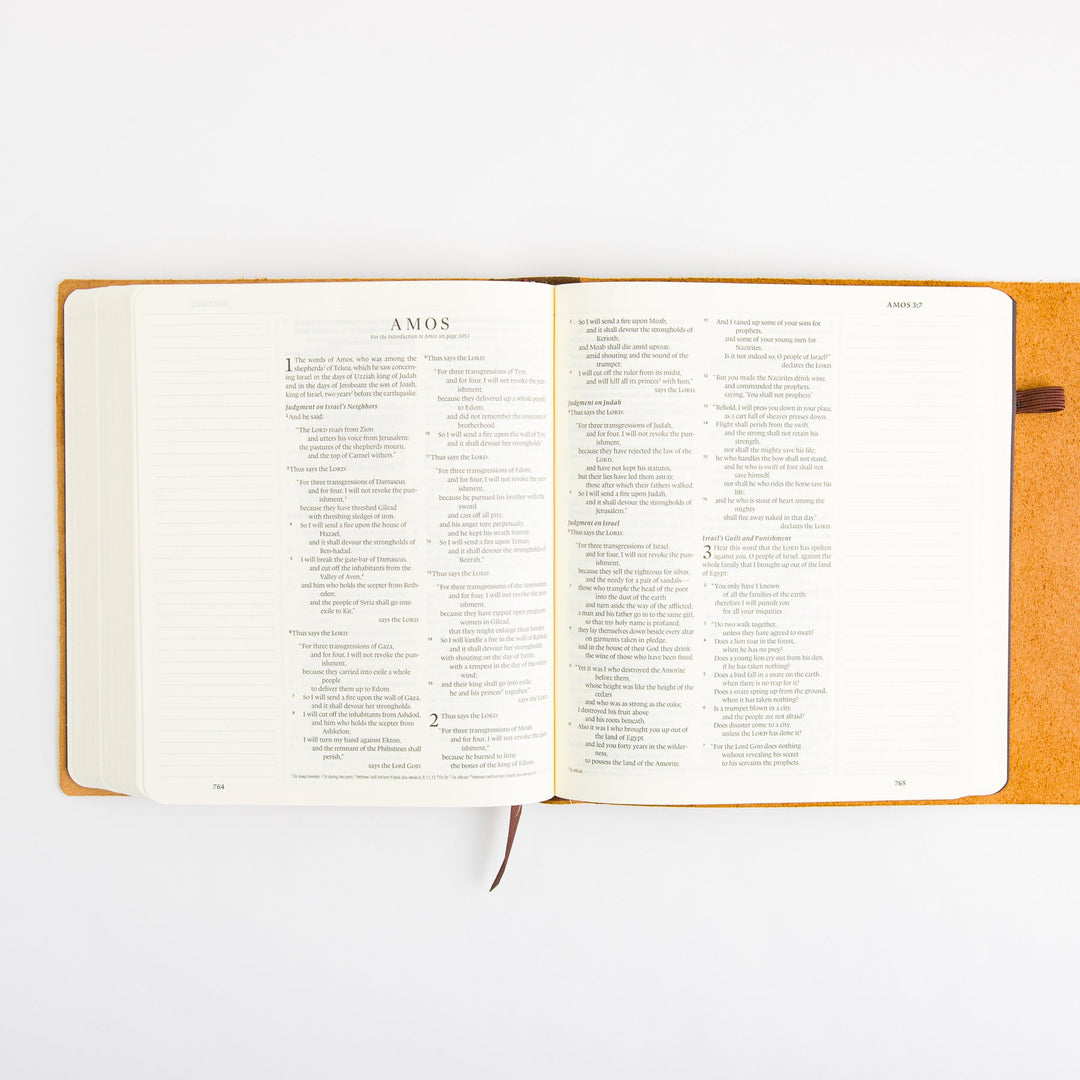 AMOS
For the Introduction to Amos see page 1053
1 The words of Amos, who was among the
shepherds¹ of Tekoa, which he saw concern-
ing Israel in the days of Uzziah king of Judah
and in the days of Jeroboam the son of Joash,
king of Israel, two years² before the earthquake.
Judgment on Israel's Neighbors
² And he said:
"The LORD roars from Zion
and utters his voice from Jerusalem;
the pastures of the shepherds mourn,
and the top of Carmel withers."
³ Thus says the LORD:
"For three transgressions of Damascus,
and for four, I will not revoke the pun-
ishment,³
because they have threshed Gilead
with threshing sledges of iron.
⁴ So I will send a fire upon the house of
Hazael,
and it shall devour the strongholds of
Ben-hadad.
⁵ I will break the gate-bar of Damascus,
and cut off the inhabitants from the
Valley of Aven,⁴
and him who holds the scepter from Beth-
eden;
and the people of Syria shall go into
exile to Kir,"
says the LORD.
⁶ Thus says the LORD:
"For three transgressions of Gaza,
and for four, I will not revoke the pun-
ishment,
because they carried into exile a whole
people
to deliver them up to Edom.
⁷ So I will send a fire upon the wall of Gaza,
and it shall devour her strongholds.
⁸ I will cut off the inhabitants from Ashdod,
and him who holds the scepter from
Ashkelon;
I will turn my hand against Ekron,
and the remnant of the Philistines shall
perish,"
says the Lord GOD.
⁹ Thus says the LORD:
"For three transgressions of Tyre,
and for four, I will not revoke the pun-
ishment,
because they delivered up a whole people
to Edom,
and did not remember the covenant of
brotherhood.
¹⁰ So I will send a fire upon the wall of Tyre,
and it shall devour her strongholds."
¹¹ Thus says the LORD:
"For three transgressions of Edom,
and for four, I will not revoke the pun-
ishment,
because he pursued his brother with the
sword
and cast off all pity,
and his anger tore perpetually,
and he kept his wrath forever.
¹² So I will send a fire upon Teman,
and it shall devour the strongholds of
Bozrah."
¹³ Thus says the LORD:
"For three transgressions of the Ammonites,
and for four, I will not revoke the pun-
ishment,
because they have ripped open pregnant
women in Gilead,
that they might enlarge their border.
¹⁴ So I will kindle a fire in the wall of Rabbah,
and it shall devour her strongholds,
with shouting on the day of battle,
with a tempest in the day of the whirl-
wind;
¹⁵ and their king shall go into exile,
he and his princes⁵ together,"
says the LORD.
2 Thus says the LORD:
"For three transgressions of Moab,
and for four, I will not revoke the pun-
ishment,⁶
because he burned to lime
the bones of the king of Edom.
764
² So I will send a fire upon Moab,
and it shall devour the strongholds of
Kerioth,
and Moab shall die amid uproar,
amid shouting and the sound of the
trumpet;
³ I will cut off the ruler from its midst,
and will kill all its princes¹ with him,"
says the LORD.
Judgment on Judah
⁴ Thus says the LORD:
"For three transgressions of Judah,
and for four, I will not revoke the pun-
ishment,
because they have rejected the law of the
LORD,
and have not kept his statutes,
but their lies have led them astray,
those after which their fathers walked.
⁵ So I will send a fire upon Judah,
and it shall devour the strongholds of
Jerusalem."
Judgment on Israel
⁶ Thus says the LORD:
"For three transgressions of Israel,
and for four, I will not revoke the pun-
ishment,
because they sell the righteous for silver,
and the needy for a pair of sandals—
⁷ those who trample the head of the poor
into the dust of the earth
and turn aside the way of the afflicted;
a man and his father go in to the same girl,
so that my holy name is profaned;
⁸ they lay themselves down beside every altar
on garments taken in pledge,
and in the house of their God they drink
the wine of those who have been fined.
⁹ "Yet it was I who destroyed the Amorite
before them,
whose height was like the height of the
cedars
and who was as strong as the oaks;
I destroyed his fruit above
and his roots beneath.
¹⁰ Also it was I who brought you up out of
the land of Egypt
and led you forty years in the wilder-
ness,
to possess the land of the Amorite.
AMOS 3:7
¹¹ And I raised up some of your sons for
prophets,
and some of your young men for
Nazirites.
Is it not indeed so, O people of Israel?"
declares the LORD.
¹² "But you made the Nazirites drink wine,
and commanded the prophets,
saying, 'You shall not prophesy.'
¹³ "Behold, I will press you down in your place,
as a cart full of sheaves presses down.
¹⁴ Flight shall perish from the swift,
and the strong shall not retain his
strength,
nor shall the mighty save his life;
¹⁵ he who handles the bow shall not stand,
and he who is swift of foot shall not
save himself,
nor shall he who rides the horse save his
life;
¹⁶ and he who is stout of heart among the
mighty
shall flee away naked in that day,"
declares the LORD.
Israel's Guilt and Punishment
3 Hear this word that the LORD has spoken
against you, O people of Israel, against the
whole family that I brought up out of the land
of Egypt:
² "You only have I known
of all the families of the earth;
therefore I will punish you
for all your iniquities.
³ "Do two walk together,
unless they have agreed to meet?
⁴ Does a lion roar in the forest,
when he has no prey?
Does a young lion cry out from his den,
if he has taken nothing?
⁵ Does a bird fall in a snare on the earth,
when there is no trap for it?
Does a snare spring up from the ground,
when it has taken nothing?
⁶ Is a trumpet blown in a city,
and the people are not afraid?
Does disaster come to a city,
unless the LORD has done it?
⁷ "For the Lord GOD does nothing
without revealing his secret
to his servants the prophets.
765